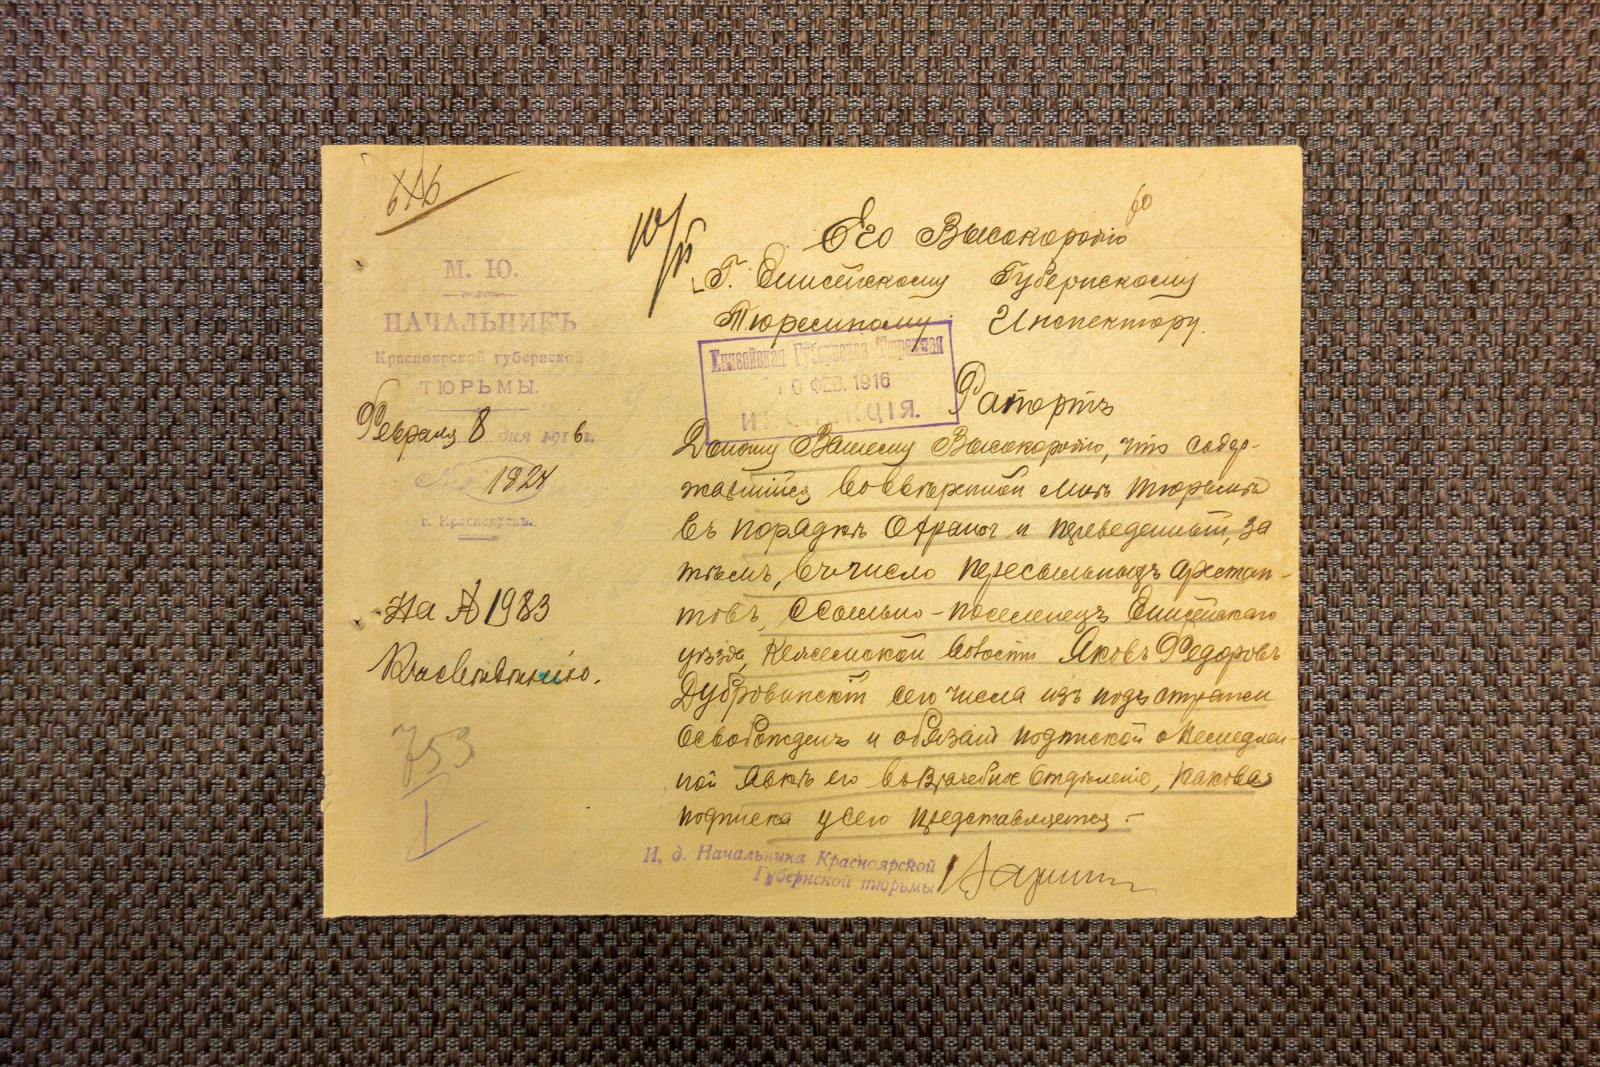 60
10/II
Его Высокородію
Г. Енисейскому Губернскому
Тюремному Инспектору.
М. Ю.
НАЧАЛЬНИКЪ
Красноярской губернской
ТЮРЬМЫ.
Февраля 8 дня 1916 г.
№ 1824
г. Красноярскъ.
На № 1983
753
Енисейская Губернская Тюремная
10 ФЕВ. 1916
ИНСПЕКЦІЯ.
Рапортъ
Доношу Вашему Высокородію, что содер-
жавшійся во ввѣренной мнѣ тюрьмѣ
въ порядкѣ Охраны и переведенный, за
тѣмъ, въ число пересыльныхъ арестан-
товъ, ссыльно-поселенецъ Енисейскаго
уѣзда, Кежемской волости Яковъ Федоровъ
Дубровинскій сего числа изъ подъ стражи
освобожденъ и обязанъ подпиской о немедлен-
ной явкѣ его въ Врачебное Отдѣленіе, какова
подписка у сего представляется.-
И. д. Начальника Красноярской
Губернской тюрьмы